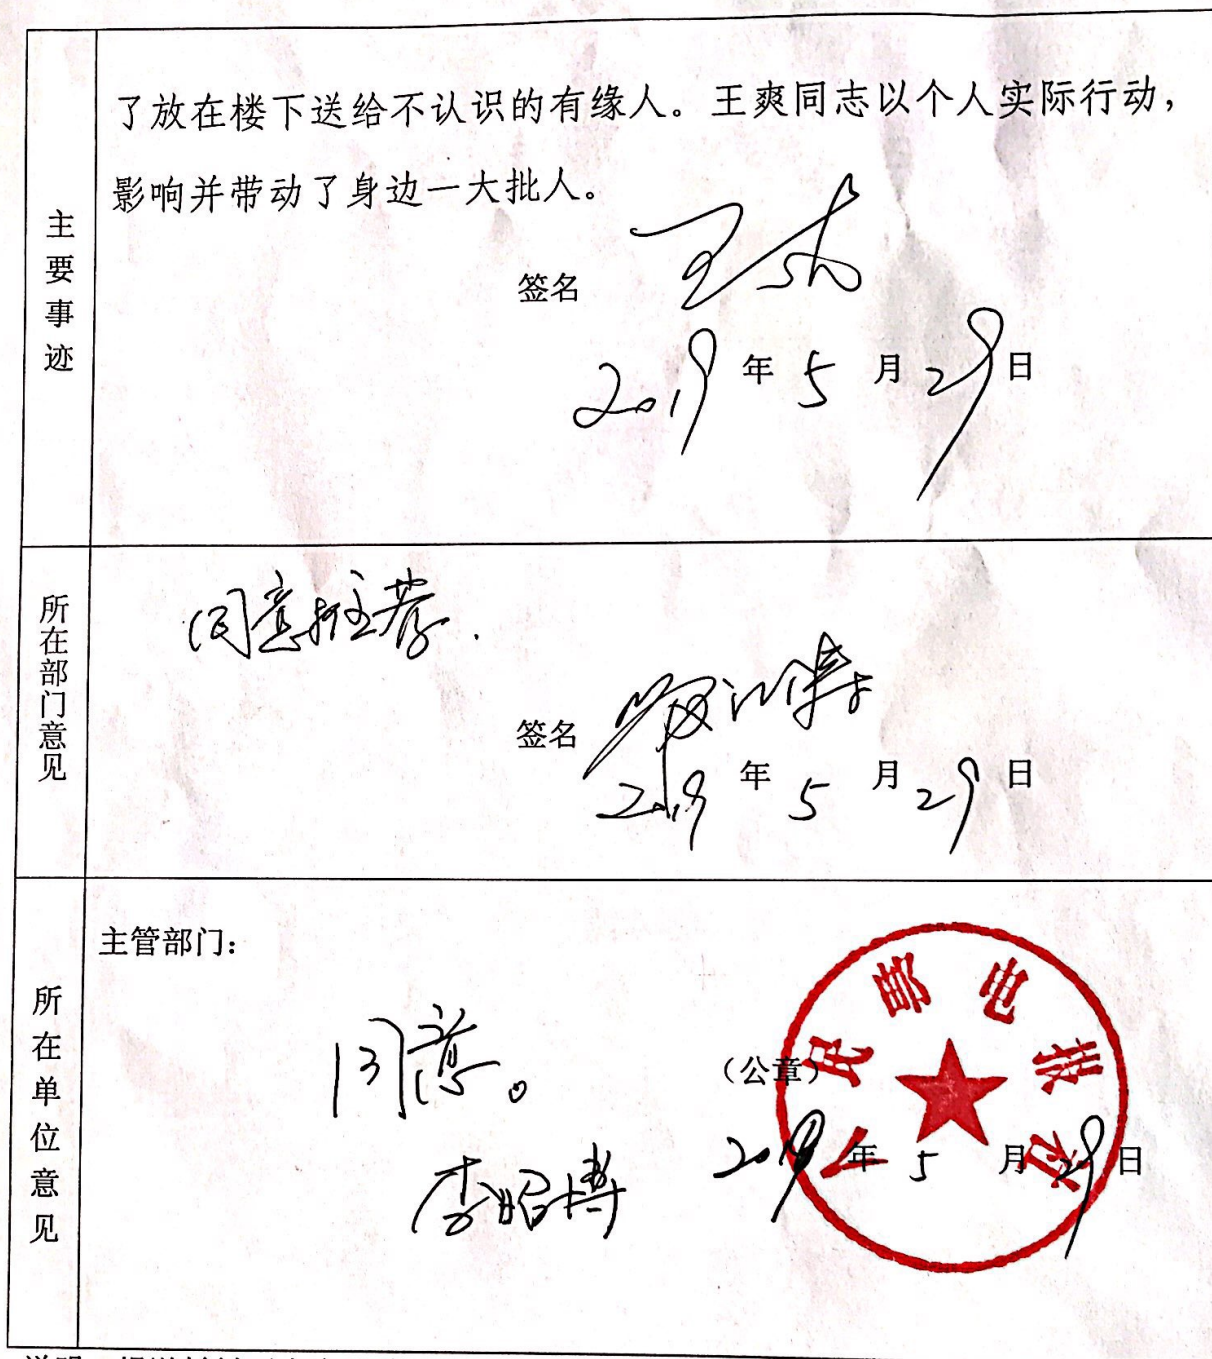 主要事迹
了放在楼下送给不认识的有缘人。王爽同志以个人实际行动，
影响并带动了身边一大批人。
签名 王杰
2019年5月29日
所在部门意见
同意推荐.
签名
2019年5月29日
所在单位意见
主管部门：
同意。
（公章）
李昭博
2019年5月29日
人民票电